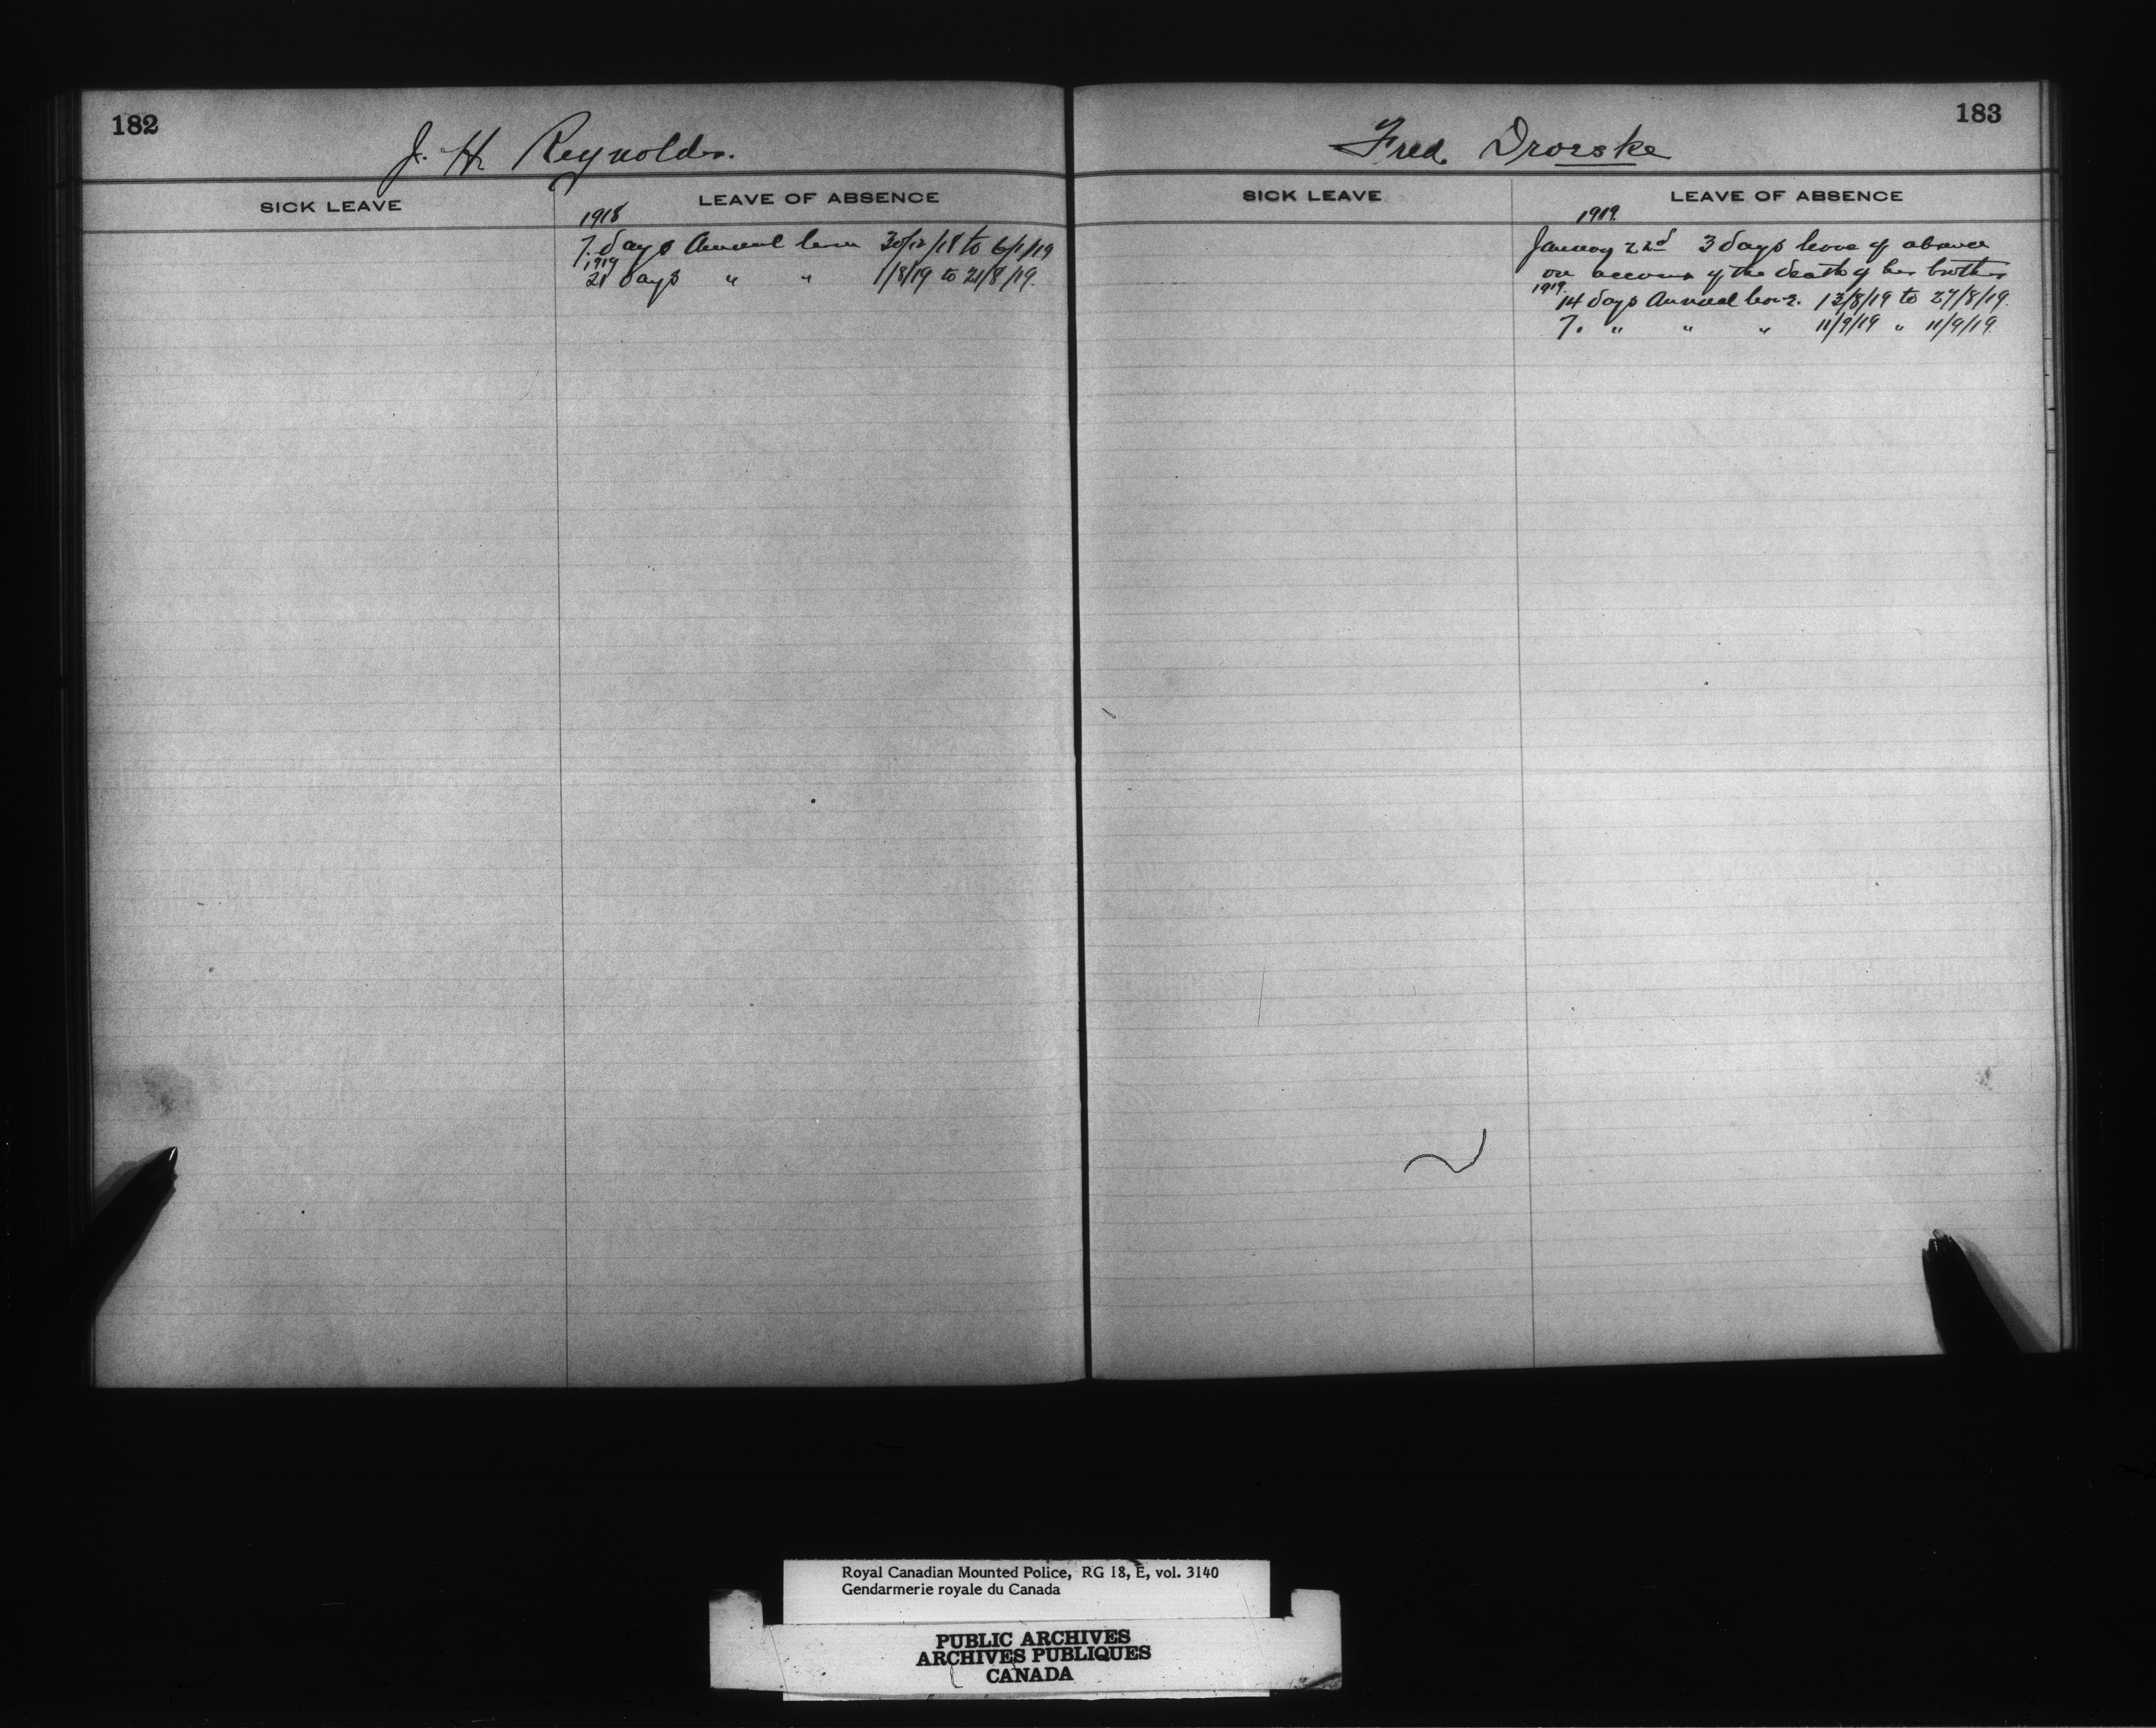 182
J. H. Reynolds.
SICK LEAVE
LEAVE OF ABSENCE
1918
7. days Annual leave 30/12/18 to 6/1/19
1919
21 days " " 1/8/19 to 21/8/19.
183
Fred Droeske
SICK LEAVE
LEAVE OF ABSENCE
1919.
January 22nd 3 days leave of absence
on account of the death of his brother
1919.
14 days Annual leave. 13/8/19 to 27/8/19.
7. " " " 11/9/19 " 11/9/19.
Royal Canadian Mounted Police, RG 18, E, vol. 3140
Gendarmerie royale du Canada
PUBLIC ARCHIVES
ARCHIVES PUBLIQUES
CANADA